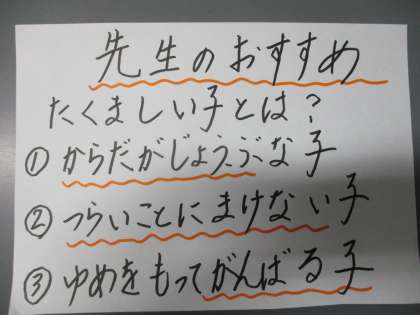 先生のおすすめ
たくましい子とは?
①からだがじょうぶな子
②つらいことにまけない子
③ゆめをもってがんばる子